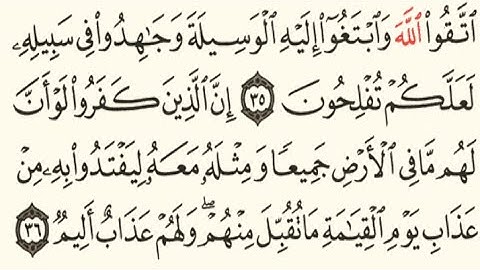 ٱتَّقُوا۟ ٱللَّهَ وَٱبْتَغُوٓا۟ إِلَيْهِ ٱلْوَسِيلَةَ وَجَٰهِدُوا۟ فِى سَبِيلِهِۦ
لَعَلَّكُمْ تُفْلِحُونَ ٣٥ إِنَّ ٱلَّذِينَ كَفَرُوا۟ لَوْ أَنَّ
لَهُم مَّا فِى ٱلْأَرْضِ جَمِيعًا وَمِثْلَهُۥ مَعَهُۥ لِيَفْتَدُوا۟ بِهِۦ مِنْ
عَذَابِ يَوْمِ ٱلْقِيَٰمَةِ مَا تُقُبِّلَ مِنْهُمْ ۖ وَلَهُمْ عَذَابٌ أَلِيمٌ ٣٦